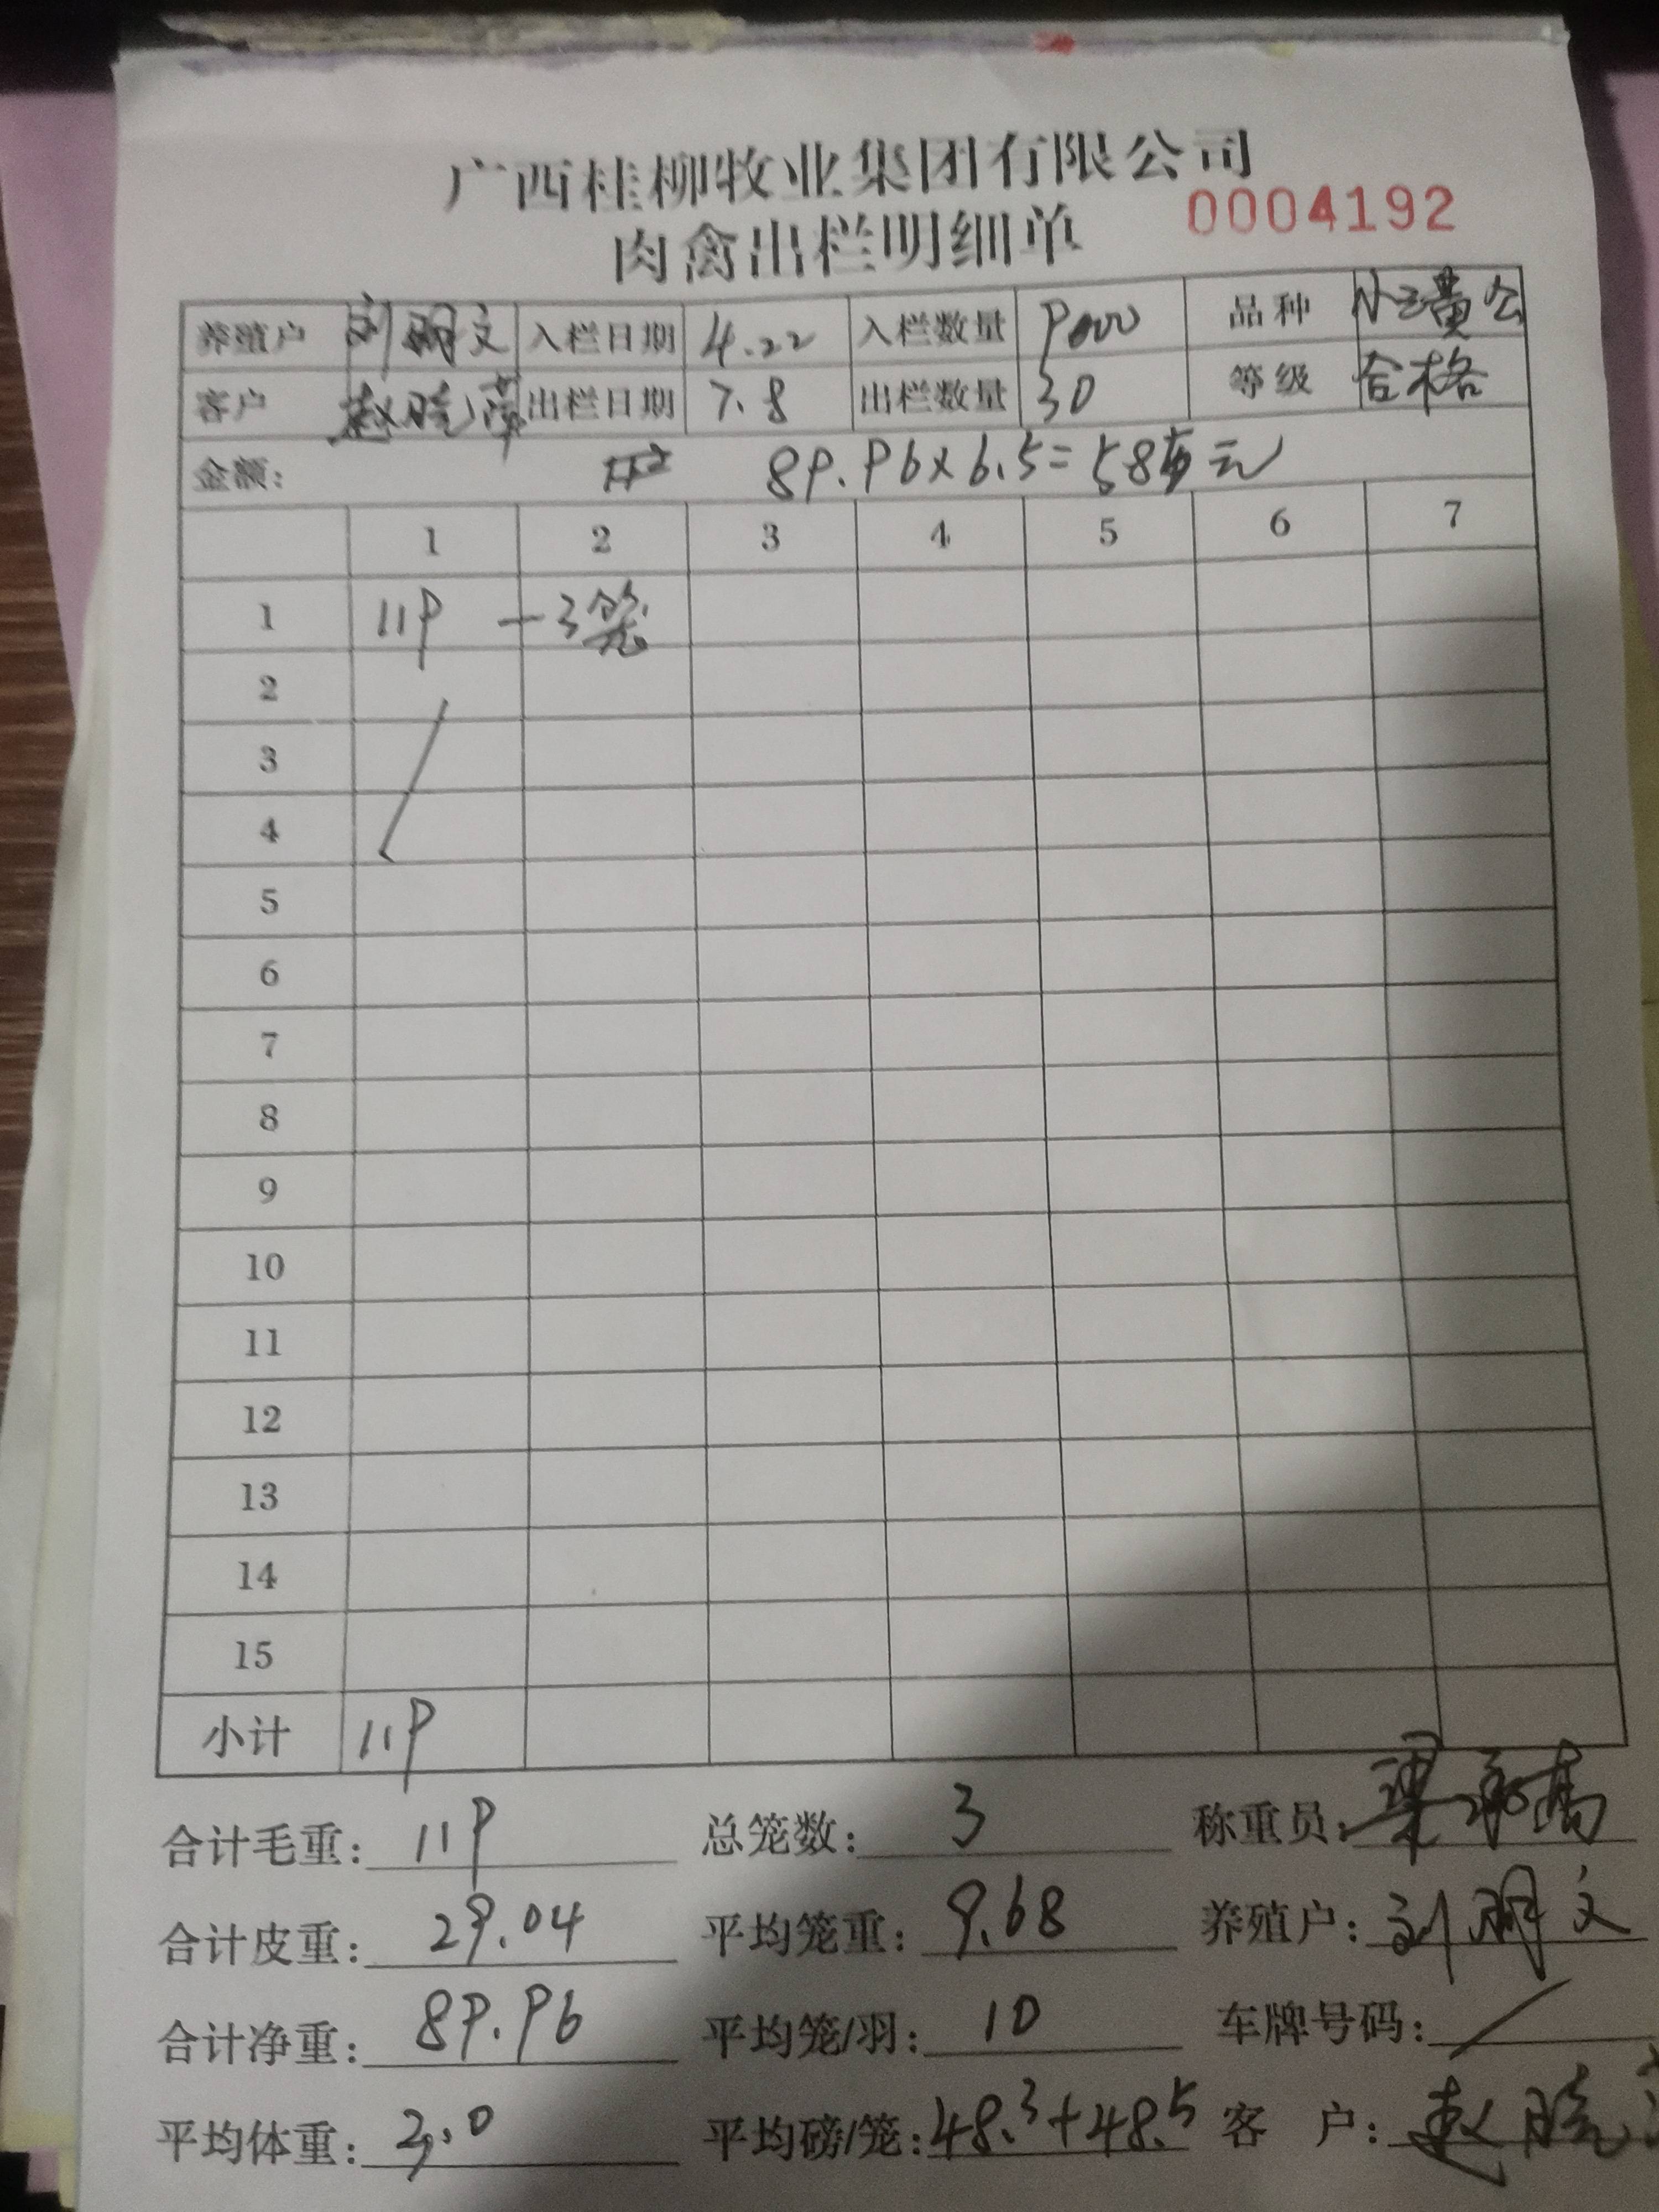 广西桂柳牧业集团有限公司
肉禽出栏明细单 0004192
养殖户 刘明文 入栏日期 4.22 入栏数量 9000 品种 小三黄公
客户 赵晓 出栏日期 7.8 出栏数量 30 等级 合格
金额: 89.96×6.5=585元
1 2 3 4 5 6 7
1 119 一3笼
2
3
4
5
6
7
8
9
10
11
12
13
14
15
小计 119
合计毛重: 119 总笼数: 3 称重员:
合计皮重: 29.04 平均笼重: 9.68 养殖户: 刘明文
合计净重: 89.96 平均笼/羽: 10 车牌号码: /
平均体重: 3.0 平均磅/笼: 48.3+48.5 客户: 赵晓